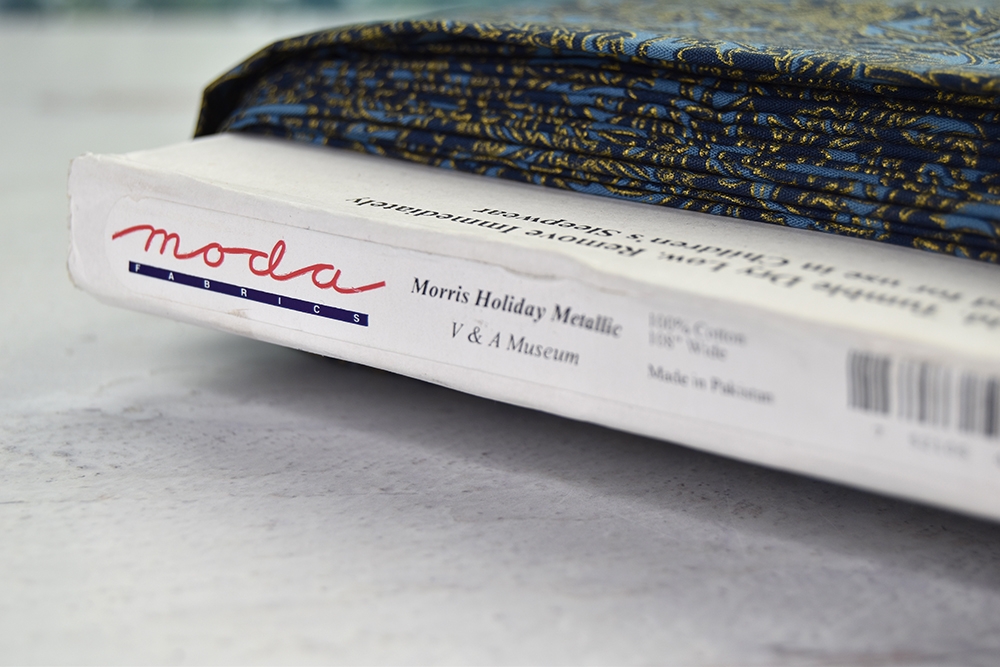 moda
FABRICS
Morris Holiday Metallic
V & A Museum
100% Cotton
108" Wide
Made in Pakistan
Tumble Dry Low. Remove Immediately
for use in Children's Sleepwear